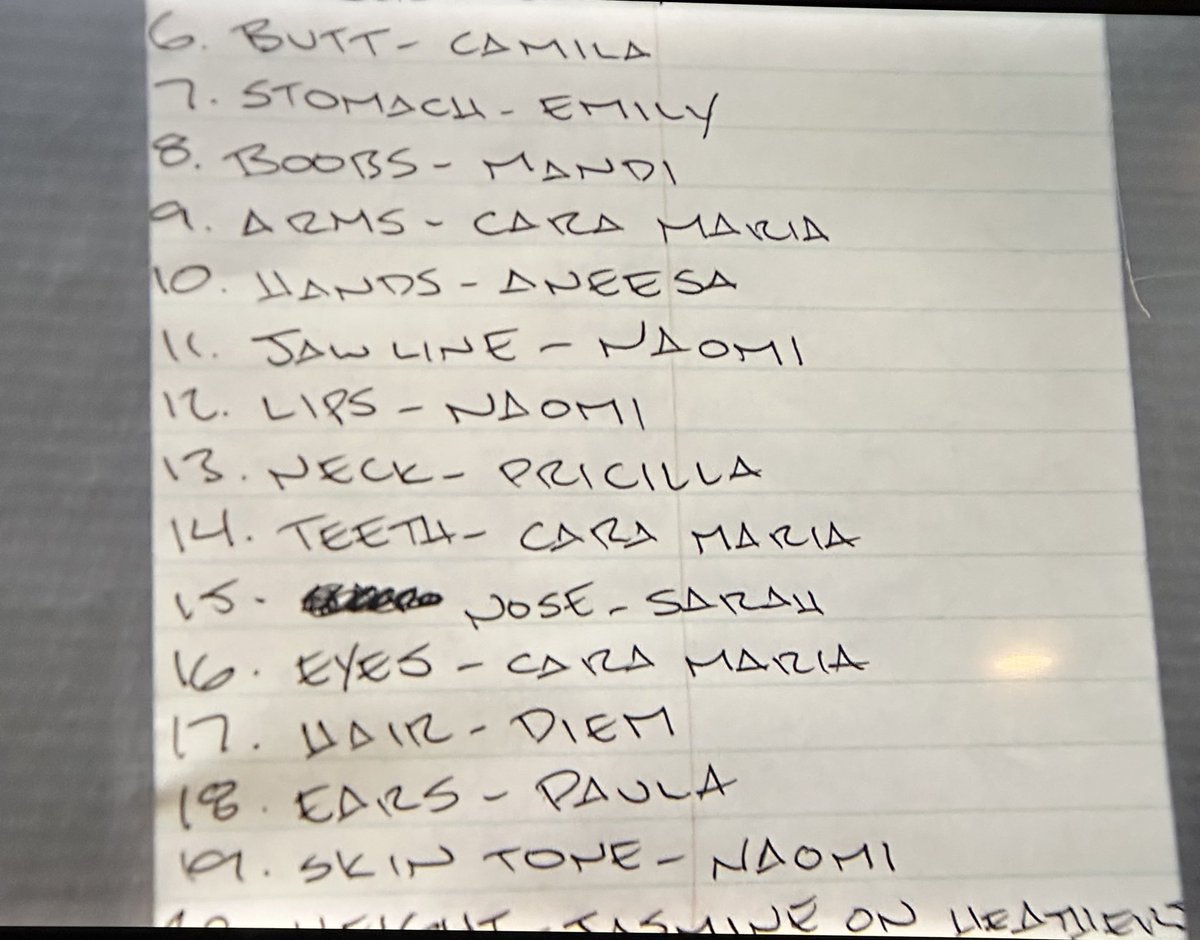 6. BUTT- CAMILA
7. STOMACH - EMILY
8. BOOBS - MANDI
9. ARMS - CARA MARIA
10. HANDS - ANEESA
11. JAW LINE - NAOMI
12. LIPS - NAOMI
13. NECK - PRICILLA
14. TEETH - CARA MARIA
15. NOSE - SARAH
16. EYES - CARA MARIA
17. HAIR - DIEM
18. EARS - PAULA
19. SKIN TONE - NAOMI
HEIGHT - JASMINE ON HEATHERS